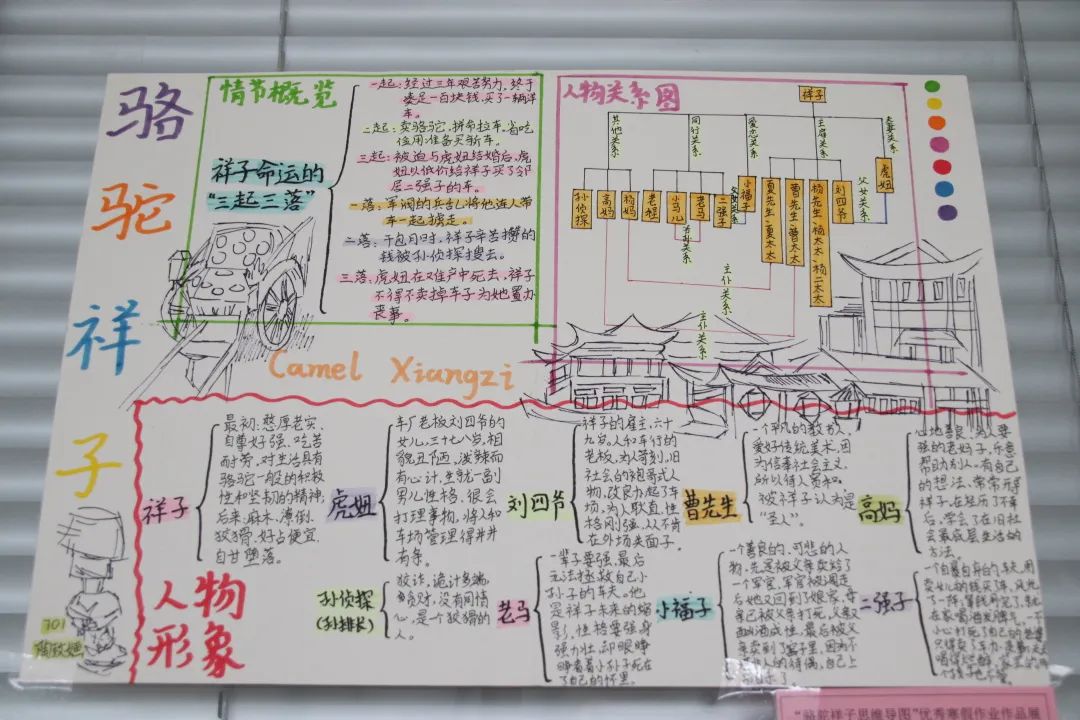 骆
驼
祥
子
情节概览
祥子命运的
“三起三落”
一起：经过三年艰苦努力，终于
凑足一百块钱，买了一辆洋
车。
二起：卖骆驼，拼命拉车，省吃
俭用准备买新车。
三起：被迫与虎妞结婚后，虎
妞以低价给祥子买了邻
居二强子的车。
一落：军阀的兵去乱将他连人带
车一起掳走。
二落：干包月时，祥子辛苦攒的
钱被孙侦探搜去。
三落：虎妞在难产中死去，祥子
不得不卖掉车子为她置办
丧事。
人物关系图
祥子
其他关系
同行关系
爱恋关系
主雇关系
夫妻关系
孙侦探
高妈
杨妈
老程
小马儿
老马
二强子
小福子
夏先生、夏太太
曹先生、曹太太
杨先生、杨太太、杨二太太
刘四爷
虎妞
父女关系
父女关系
祖孙关系
主仆关系
主仆关系
Camel Xiangzi
人物
形象
祥子
最初：憨厚老实、
自尊好强、吃苦
耐劳，对生活具有
骆驼一般的积极
性和坚韧的精神，
后来：麻木、潦倒、
狡猾、好占便宜、
自甘堕落。
虎妞
车厂老板刘四爷的
女儿，三十七八岁，相
貌丑陋，泼辣而
有心计，生就一副
男儿性格，很会
打理事物，将人和
车场管理得井井
有条。
刘四爷
祥子的雇主，六十
九岁，人和车行的
老板，为人苛刻，旧
社会的袍哥式人
物，改良办起了车
场，为人耿直，性
格刚强，从不肯
在外场失面子。
曹先生
一个平凡的教书人，
爱好传统美术，因
为信奉社会主义，
所以待人宽和，
被祥子认为是
“圣人”。
高妈
心地善良，为人要
强的老妈子，乐意
帮助别人。有自己
的想法，常常开导
祥子，在经历了不幸
后，学会了在旧社
会最底层生活的
方法。
孙侦探
(孙排长)
狡诈，诡计多端，
贪财，没有同情
心，是个狡猾的
人。
老马
一辈子要强，最后
无法拯救自己小
孙子的车夫。他
是祥子未来的缩
影，性格要强，身
强力壮，却眼睁
睁看着小孙子死在
了自己的怀里。
小福子
一个善良的、可悲的人
物，先是被父亲卖给了
一个军官，军官被调走
后她又回到了娘家，母
亲已被父亲打死，父亲
酗酒成性，最后被父
亲卖到了窑子里，因为不
二强子
一个自暴自弃的车夫，用
卖女儿的钱买了车，
701
“骆驼祥子思维导图”优秀寒假作业作品展